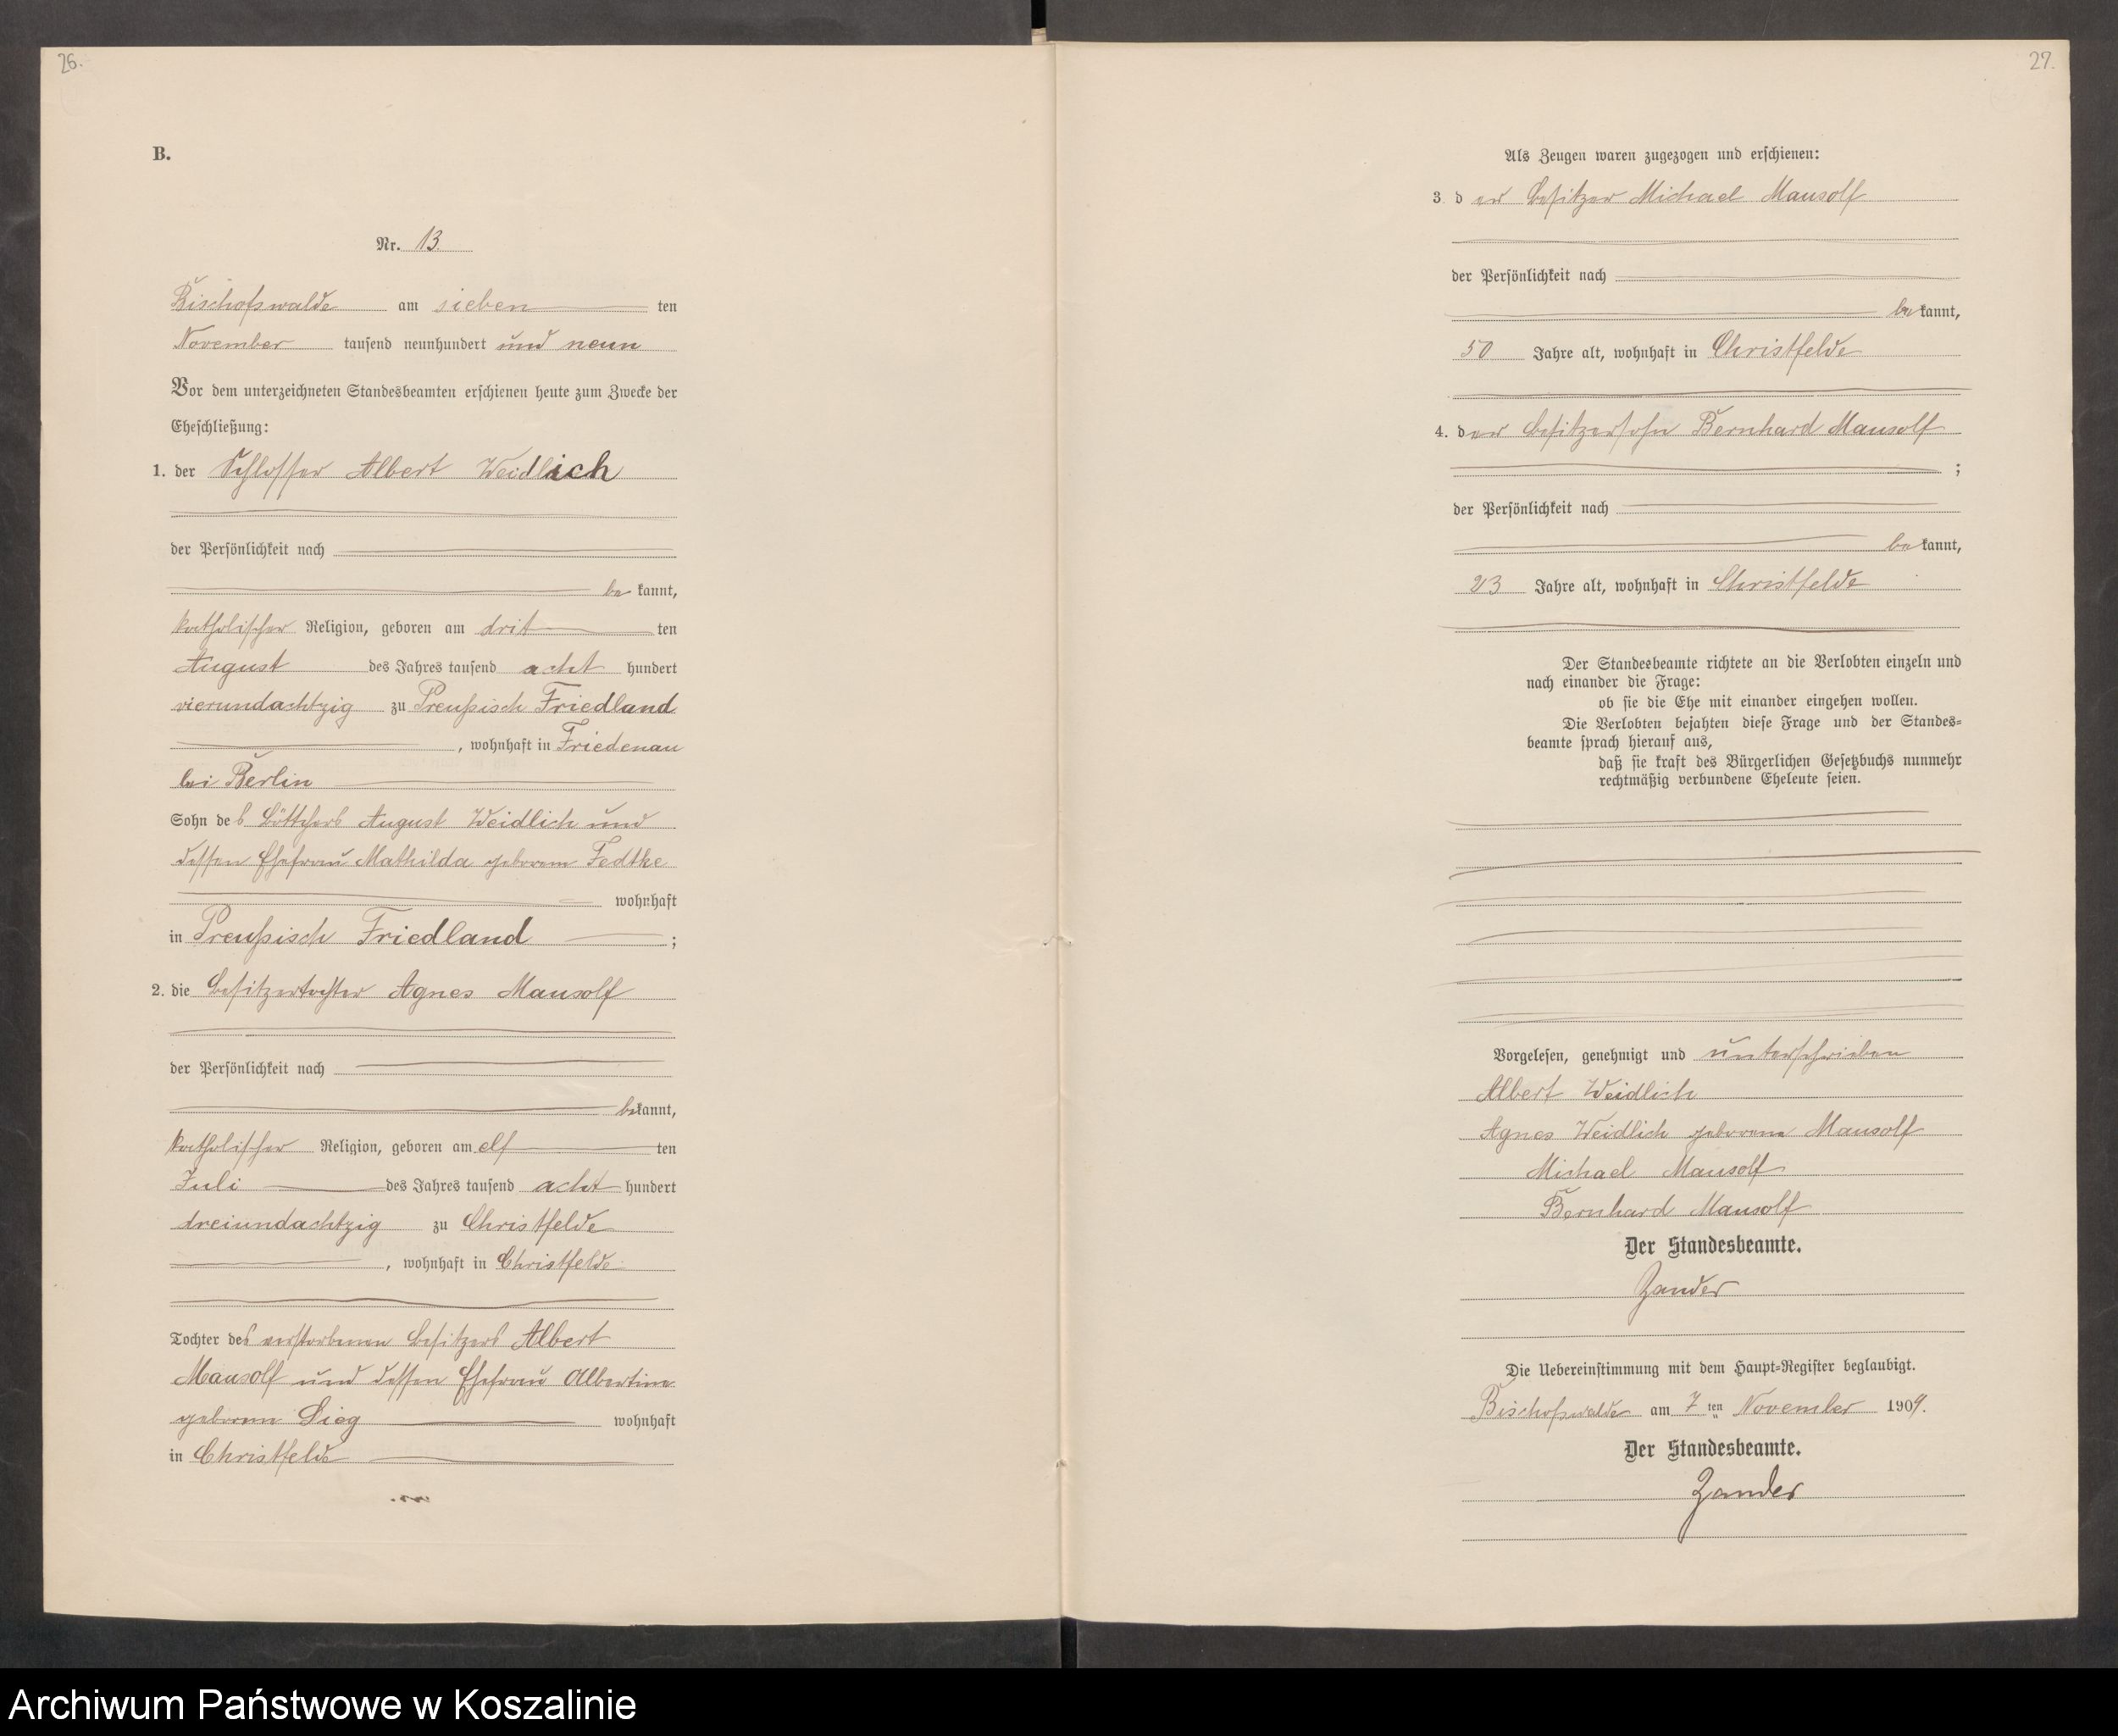 26.
B.
Nr. 13.
Bischofswalde am sieben ten
November tausend neunhundert und neun
Vor dem unterzeichneten Standesbeamten erschienen heute zum Zwecke der
Eheschließung:
1. der Schlosser Albert Weidlich
der Persönlichkeit nach
be kannt,
katholischer Religion, geboren am drit ten
August des Jahres tausend acht hundert
vierundachtzig zu Preußisch Friedland
, wohnhaft in Friedenau
bei Berlin
Sohn des Böttchers August Weidlich und
dessen Ehefrau Mathilda geborene Fedtke
wohnhaft
in Preußisch Friedland ;
2. die Besitzertochter Agnes Mausolf
der Persönlichkeit nach
bekannt,
katholischer Religion, geboren am elf ten
Juli des Jahres tausend acht hundert
dreiundachtzig zu Christfelde
, wohnhaft in Christfelde
Tochter des verstorbenen Besitzers Albert
Mausolf und dessen Ehefrau Albertine
geborene Sieg wohnhaft
in Christfelde
27.
Als Zeugen waren zugezogen und erschienen:
3. der Besitzer Michael Mausolf
der Persönlichkeit nach
bekannt,
50 Jahre alt, wohnhaft in Christfelde
4. der Besitzersohn Bernhard Mausolf
;
der Persönlichkeit nach
bekannt,
23 Jahre alt, wohnhaft in Christfelde
Der Standesbeamte richtete an die Verlobten einzeln und
nach einander die Frage:
ob sie die Ehe mit einander eingehen wollen.
Die Verlobten bejahten diese Frage und der Standes=
beamte sprach hierauf aus,
daß sie kraft des Bürgerlichen Gesetzbuchs nunmehr
rechtmäßig verbundene Eheleute seien.
Vorgelesen, genehmigt und unterschrieben
Albert Weidlich
Agnes Weidlich geborene Mausolf
Michael Mausolf
Bernhard Mausolf
Der Standesbeamte.
Zander
Die Uebereinstimmung mit dem Haupt=Register beglaubigt.
Bischofswalde am 7 ten November 1909.
Der Standesbeamte.
Zander
Archiwum Państwowe w Koszalinie